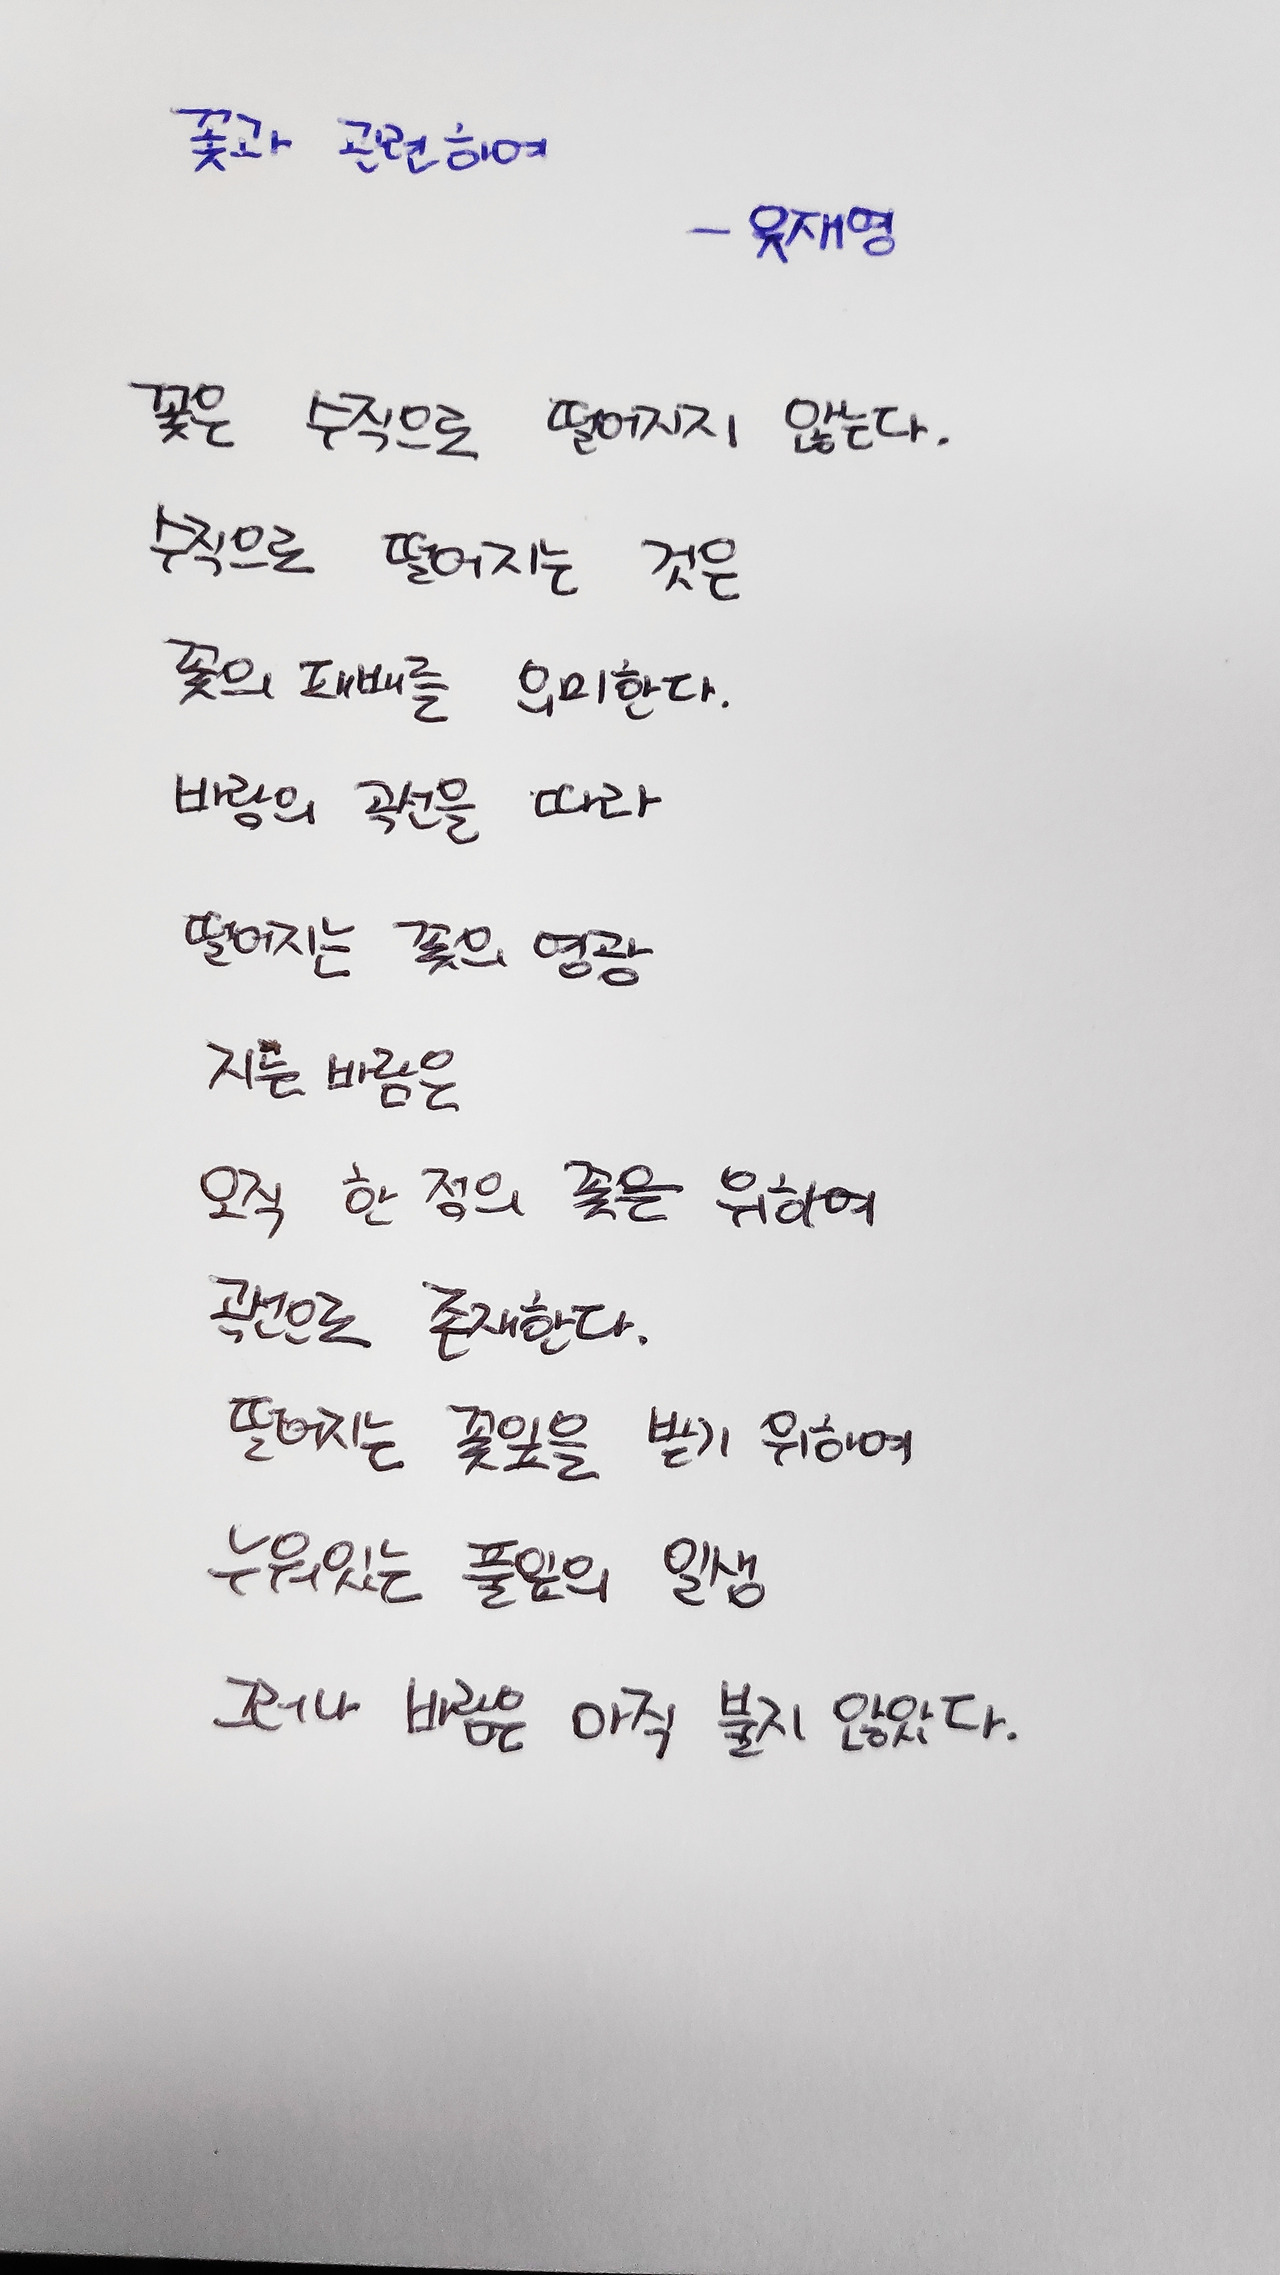 꽃과 관련하여
- 유재영
꽃은 수직으로 떨어지지 않는다.
수직으로 떨어지는 것은
꽃의 패배를 의미한다.
바람의 곡선을 따라
떨어지는 꽃의 영광
지푼 바람은
오직 한 점의 꽃은 위하여
곡선으로 존재한다.
떨어지는 꽃잎을 받기 위하여
누워있는 풀잎의 일생
그러나 바람은 아직 불지 않았다.